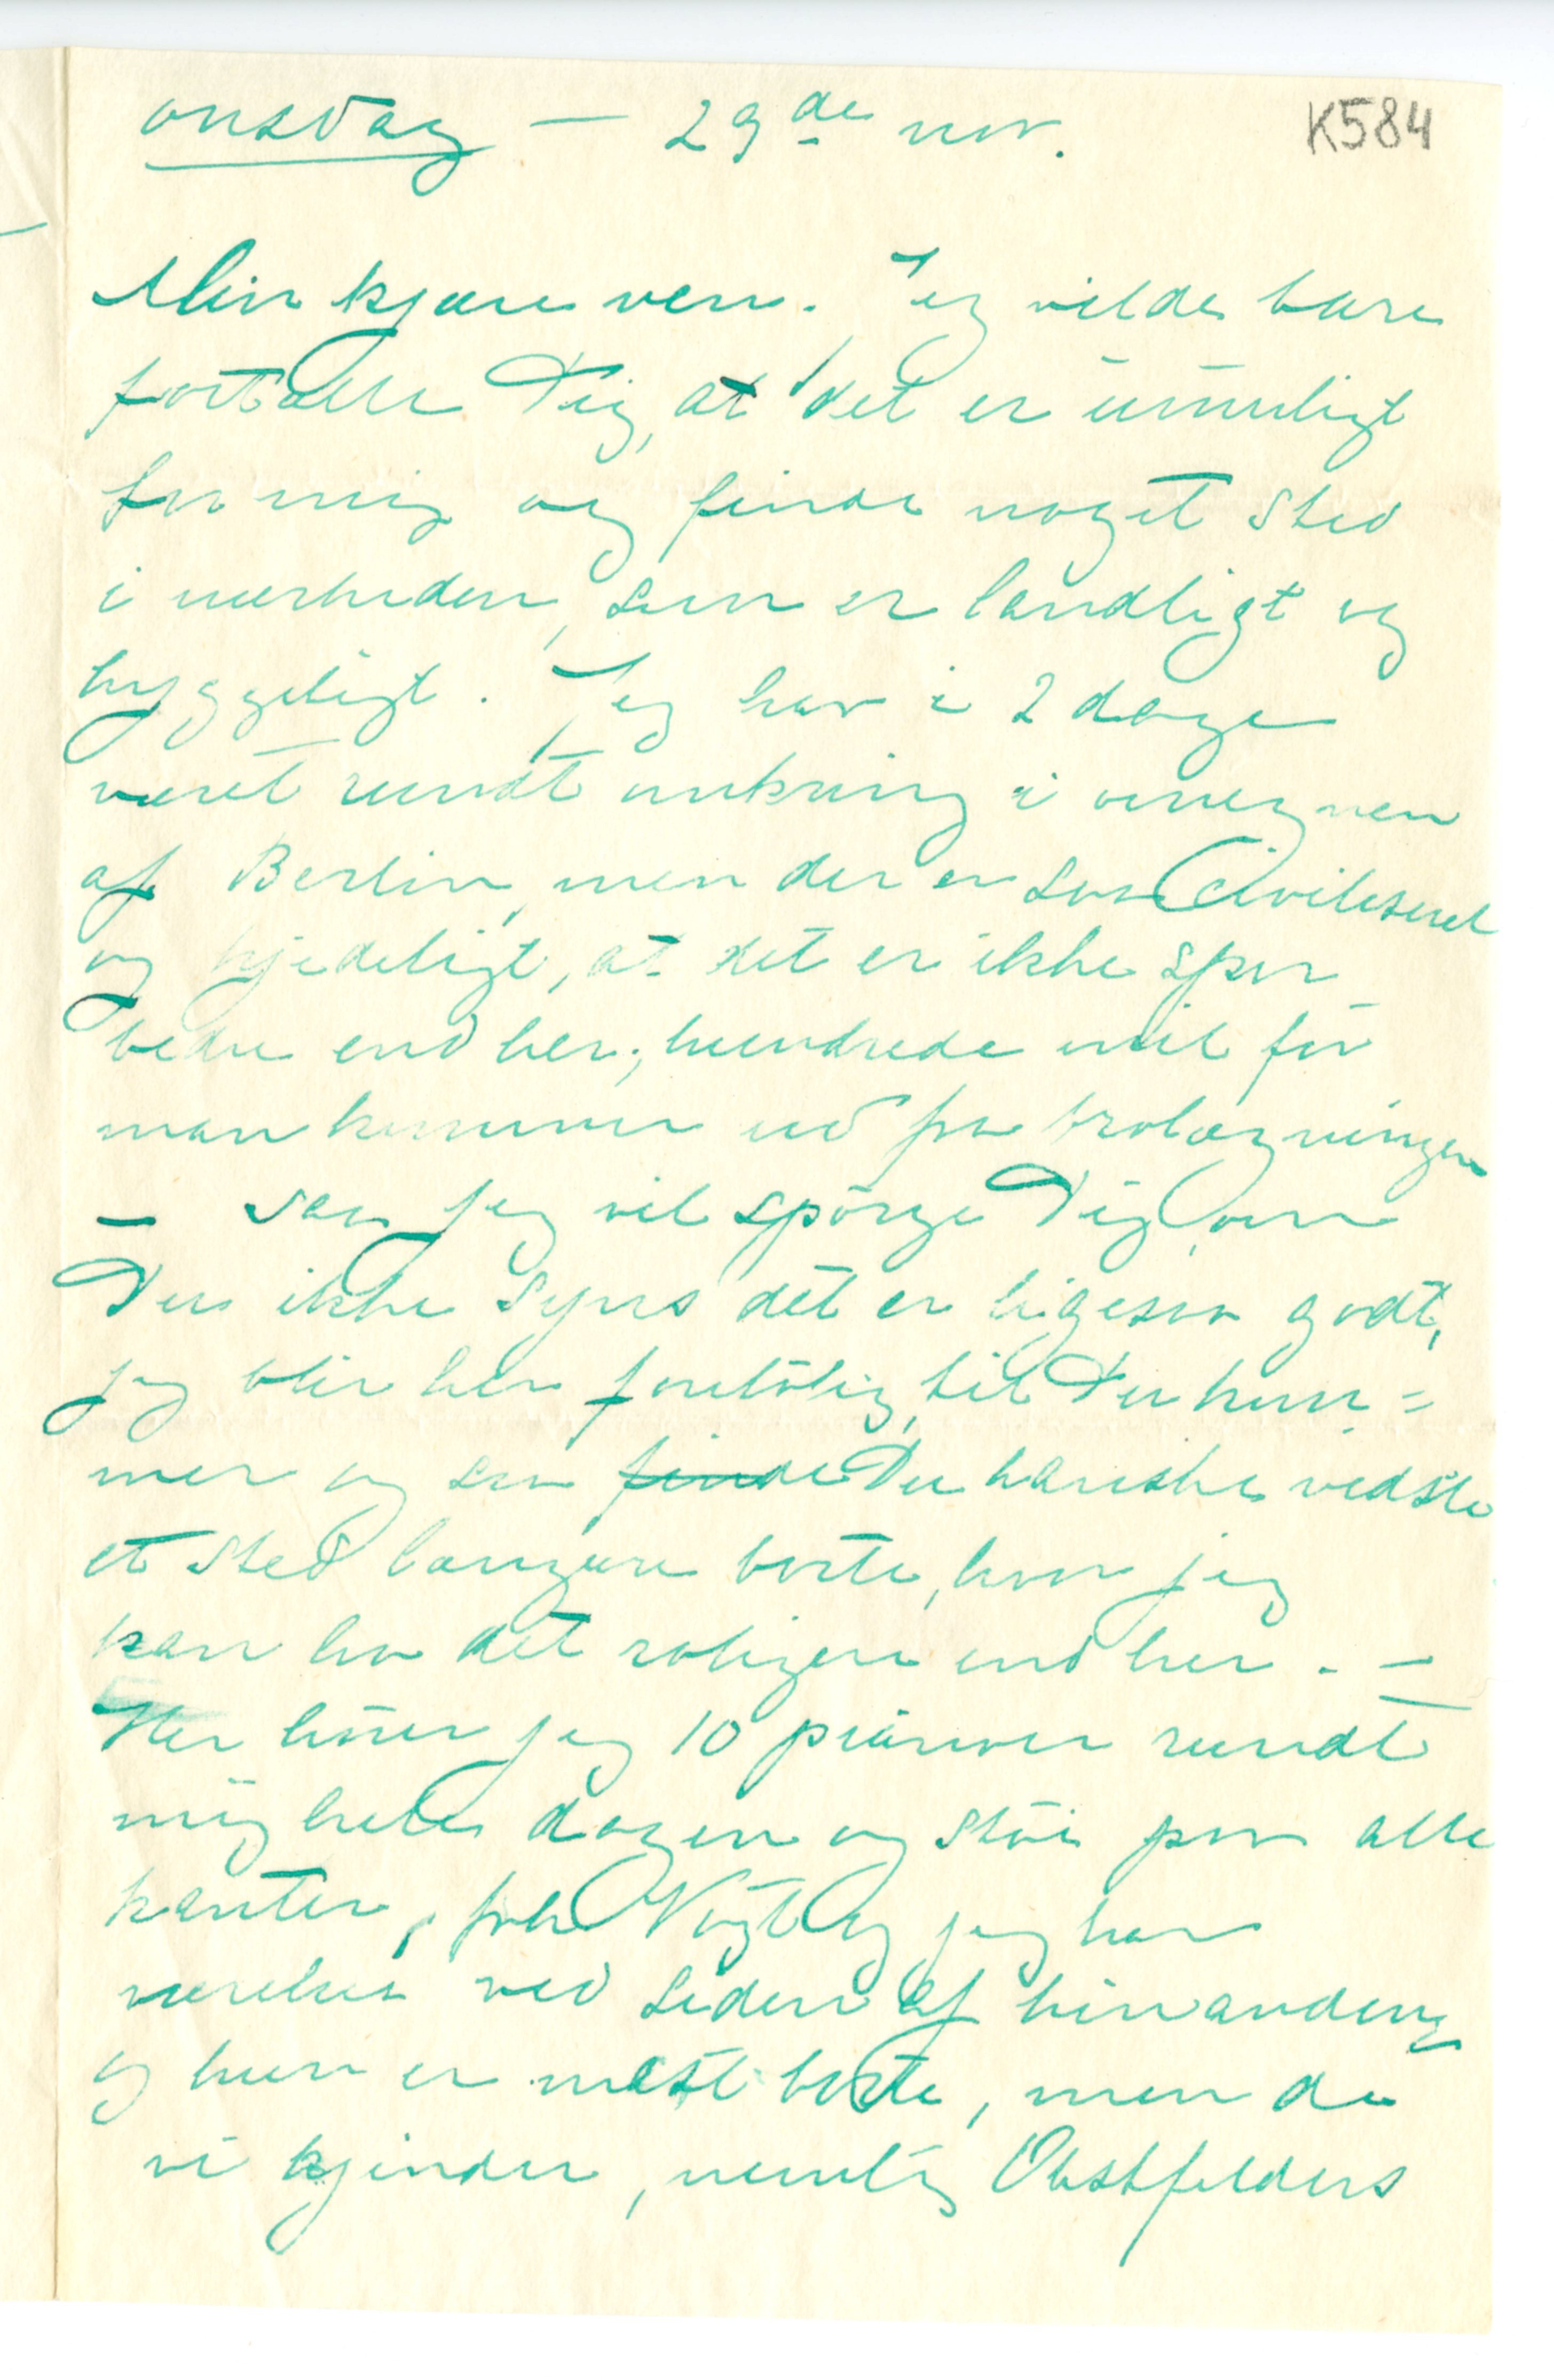 onsdag – 29de nov.
K584
Min kjære ven. Jeg vilde bare
fortælle Dig, at det er umuligt
for mig og finde noget sted
i nærheden, som er landligt og
hyggeligt. Jeg har i 2 dage
været rundt omkring i omegnen
af Berlin, men der er saa civiliseret
og kjedeligt, at det er ikke spor
bedre end her; hundrede mil før
man kommer ud fra brolægningen
– saa jeg vil spørge Dig, om
Du ikke syns det er ligesaa godt,
jeg blir her foreløbig, til Du kom=
mer og saa finde Du kanske vidste
et sted længere borte, hvor jeg
kan ha det roligere end her. –
Her hører jeg 10 pianoer rundt
mig hele dagen og støi paa alle
kanter, frk Vogt og jeg har
værelser ved siden af hinanden,
og hun er mest borte, men de
vi kjender, nemlig Obstfelders